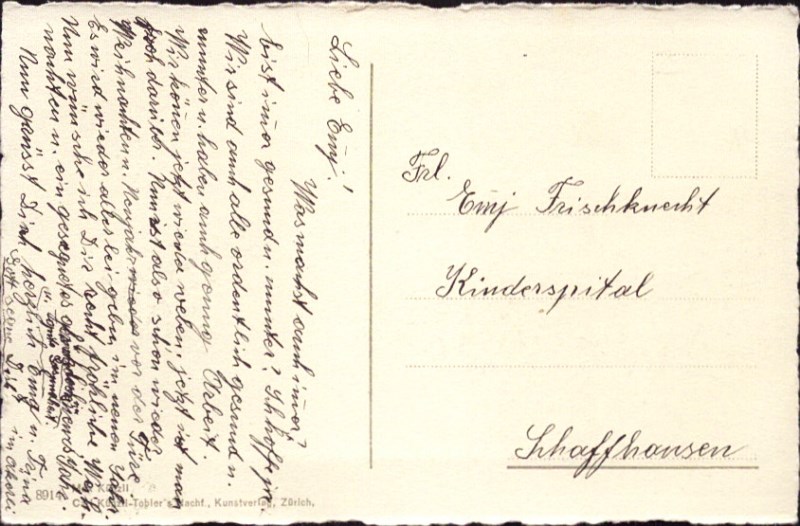 Liebe Emj!
Was machst auch imer?
bist imer gesund u. munter? Ich hoffe ja.
Wir sind auch alle ordentlich gesund u.
munter u. haben auch genug Arbeit.
Wir könen jetzt wieder weben, jetzt ist man
froh darüber. Nun ist also schon wieder
Weihnachten u. Neujahr vor der Türe.
Es wird wieder allerlei geben im neuen Jahr.
Nun wünsche ich Dir recht fröhliche Weih-
nachten u. ein gesegnetes Jahr.
Nun grüsst Dich herzlich Emma u. Frina
Gott segne Dich
Frl.
Emj Frischknecht
Kinderspital
Schaffhausen
8914
Künzli-Tobler's Nachf., Kunstverlag, Zürich.